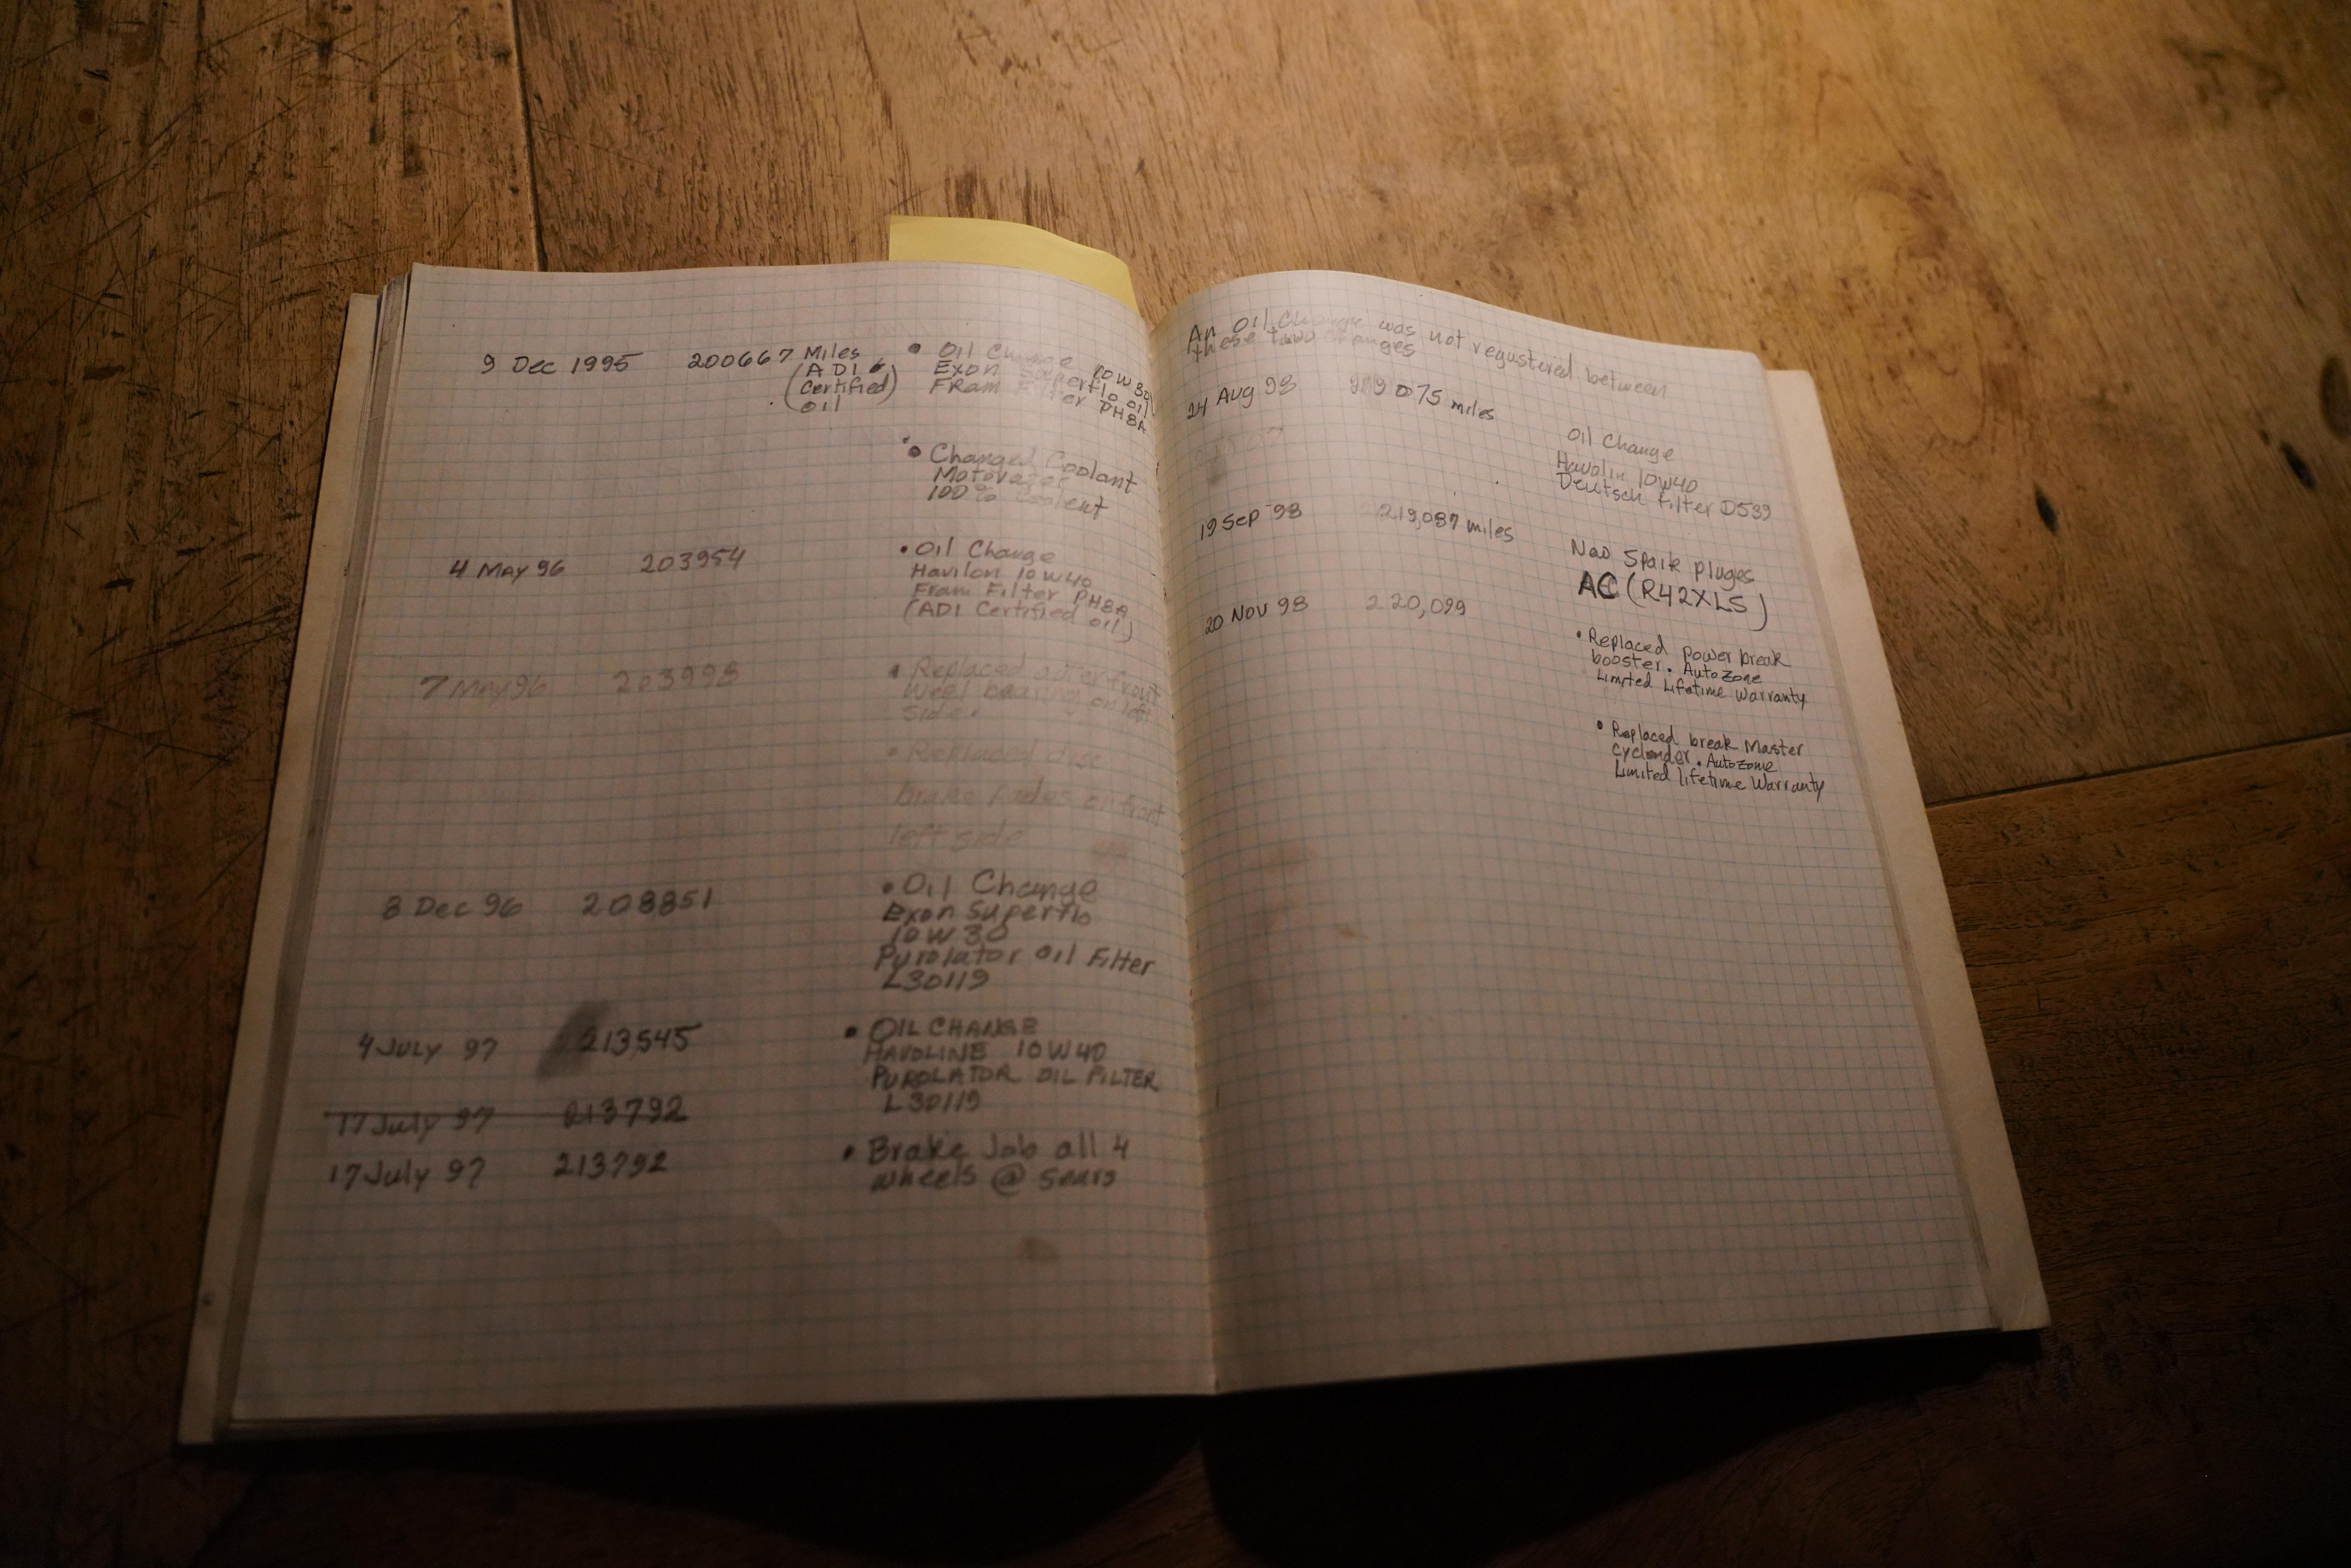 9 Dec 1995 200667 Miles
(ADI
Certified)
oil
• Oil Change 10W30
Exon Superflo oil
FRam Filter PH8A
• Changed Coolant
Motorvator
100% Coolent
4 May 96 203954
• Oil Change
Havilon 10W40
Fram Filter PH8A
(ADI Certified oil)
7 May 96 203995
• Replaced outer front
Weel bearing on left
side.
• Replaced disc
Brake Pades on front
left side
8 Dec 96 208851
• Oil Change
Exon Superflo
10W30
Purolator oil Filter
L30119
4 JULY 97 213545
• OIL CHANGE
HAVOLINE 10W40
PUROLATOR OIL FILTER
L30119
17 July 97 213792
17 July 97 213792
• Brake Job all 4
wheels @ Sears
An Oil Change was not regustered between
these two changes
24 Aug 98 075 miles
Oil Change
Havolin 10W40
Deutsch Filter D539
19 Sep 98 219,087 miles
Spark pluges
AC (R42XLS)
20 Nov 98 220,099
• Replaced power break
booster. AutoZone
Limited Lifetime Warranty
• Replaced break Master
cyclender. AutoZone
Limited lifetime Warranty